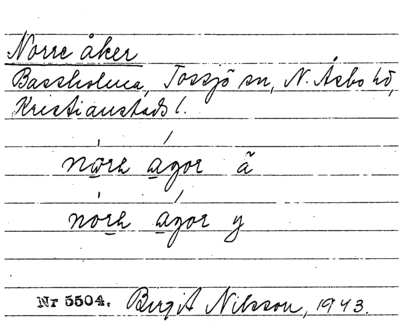 Norre åker
Bassholma, Tossjö sn, N. Åsbo hd,
Kristianstads l.
nǫrą ągor ã
nǫrą ągor y
Nr 5504. Birgit Nilsson, 1943.